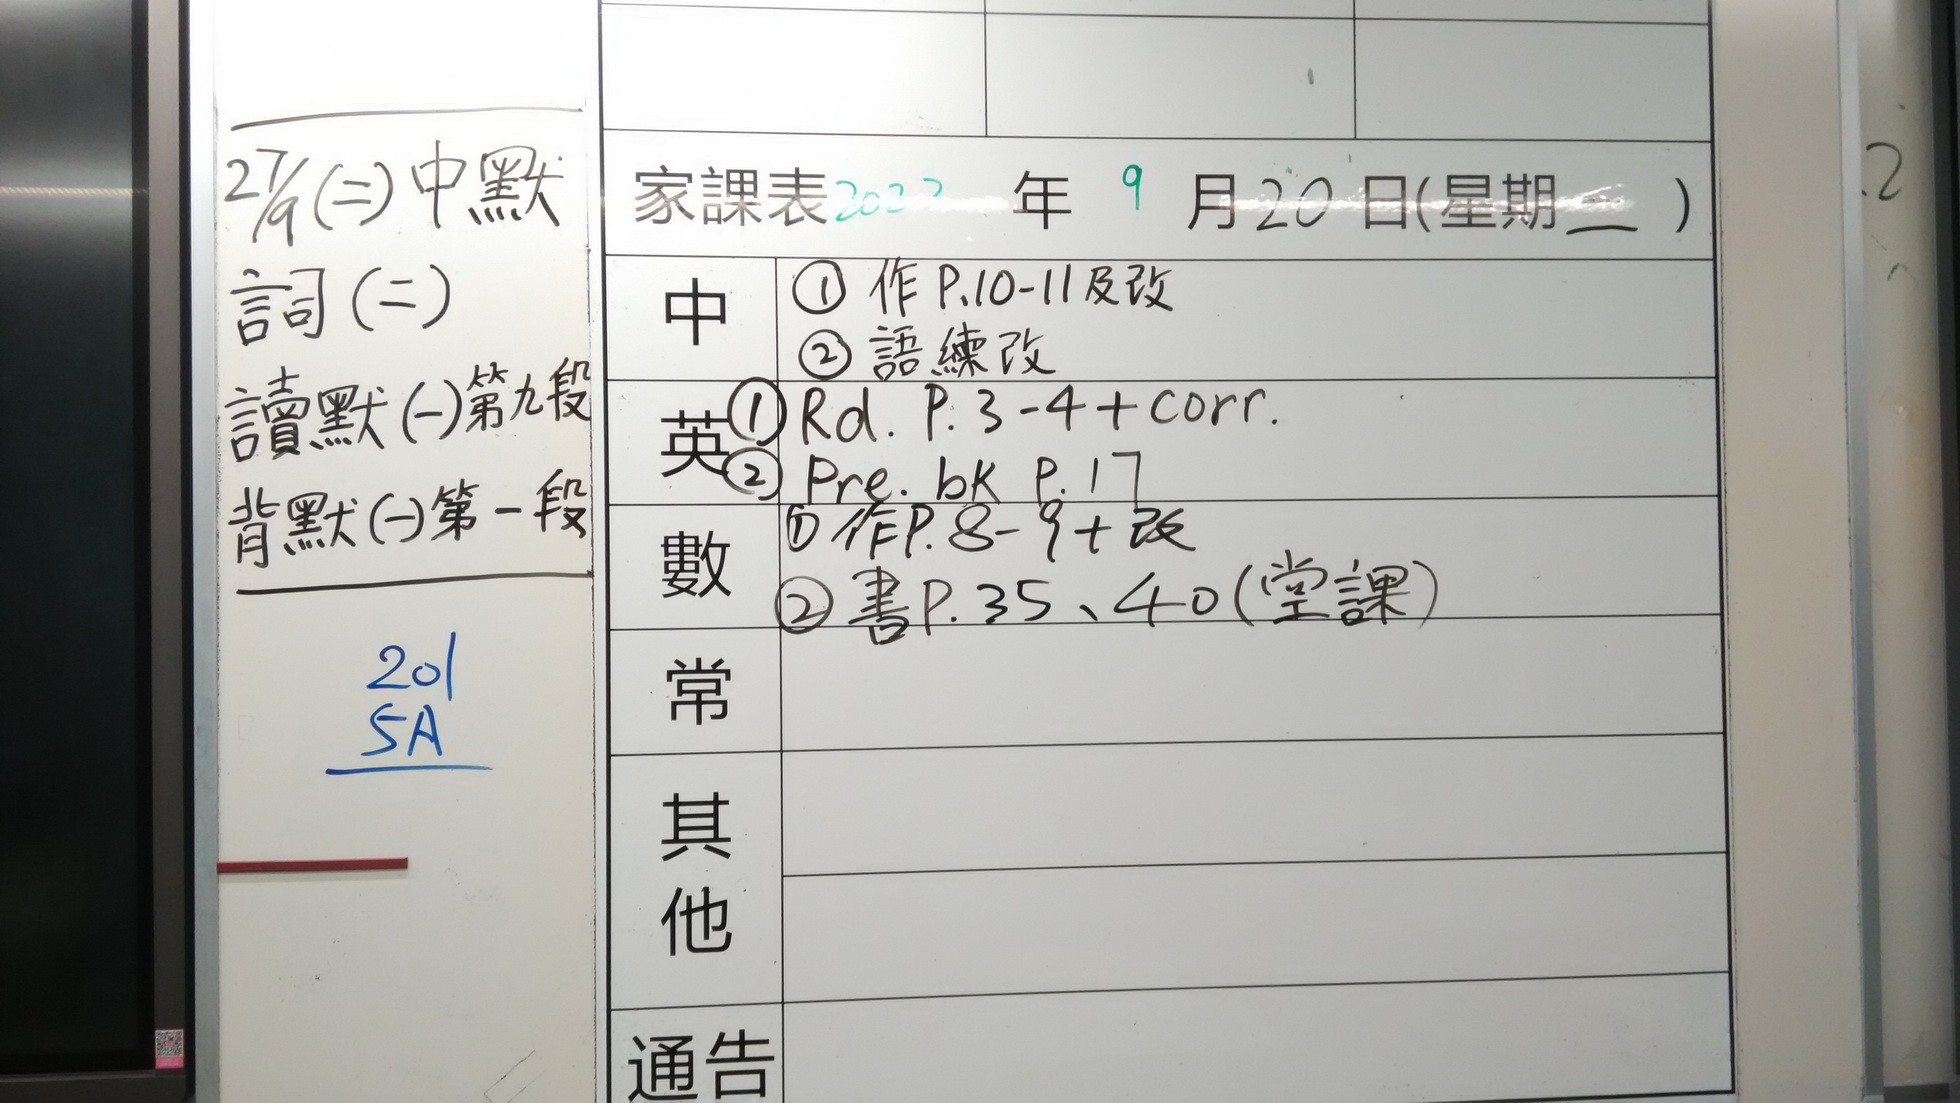 27/9(二)中默
詞(二)
讀默(一)第九段
背默(一)第一段
201
5A
家課表2022年 9月20日(星期二)
中
① 作 P.10-11及改
② 語練改
英
① Rd. P.3-4+corr.
② Pre. bk P.17
數
① 作P.8-9+改
② 書P.35、40(堂課)
常
其他
通告